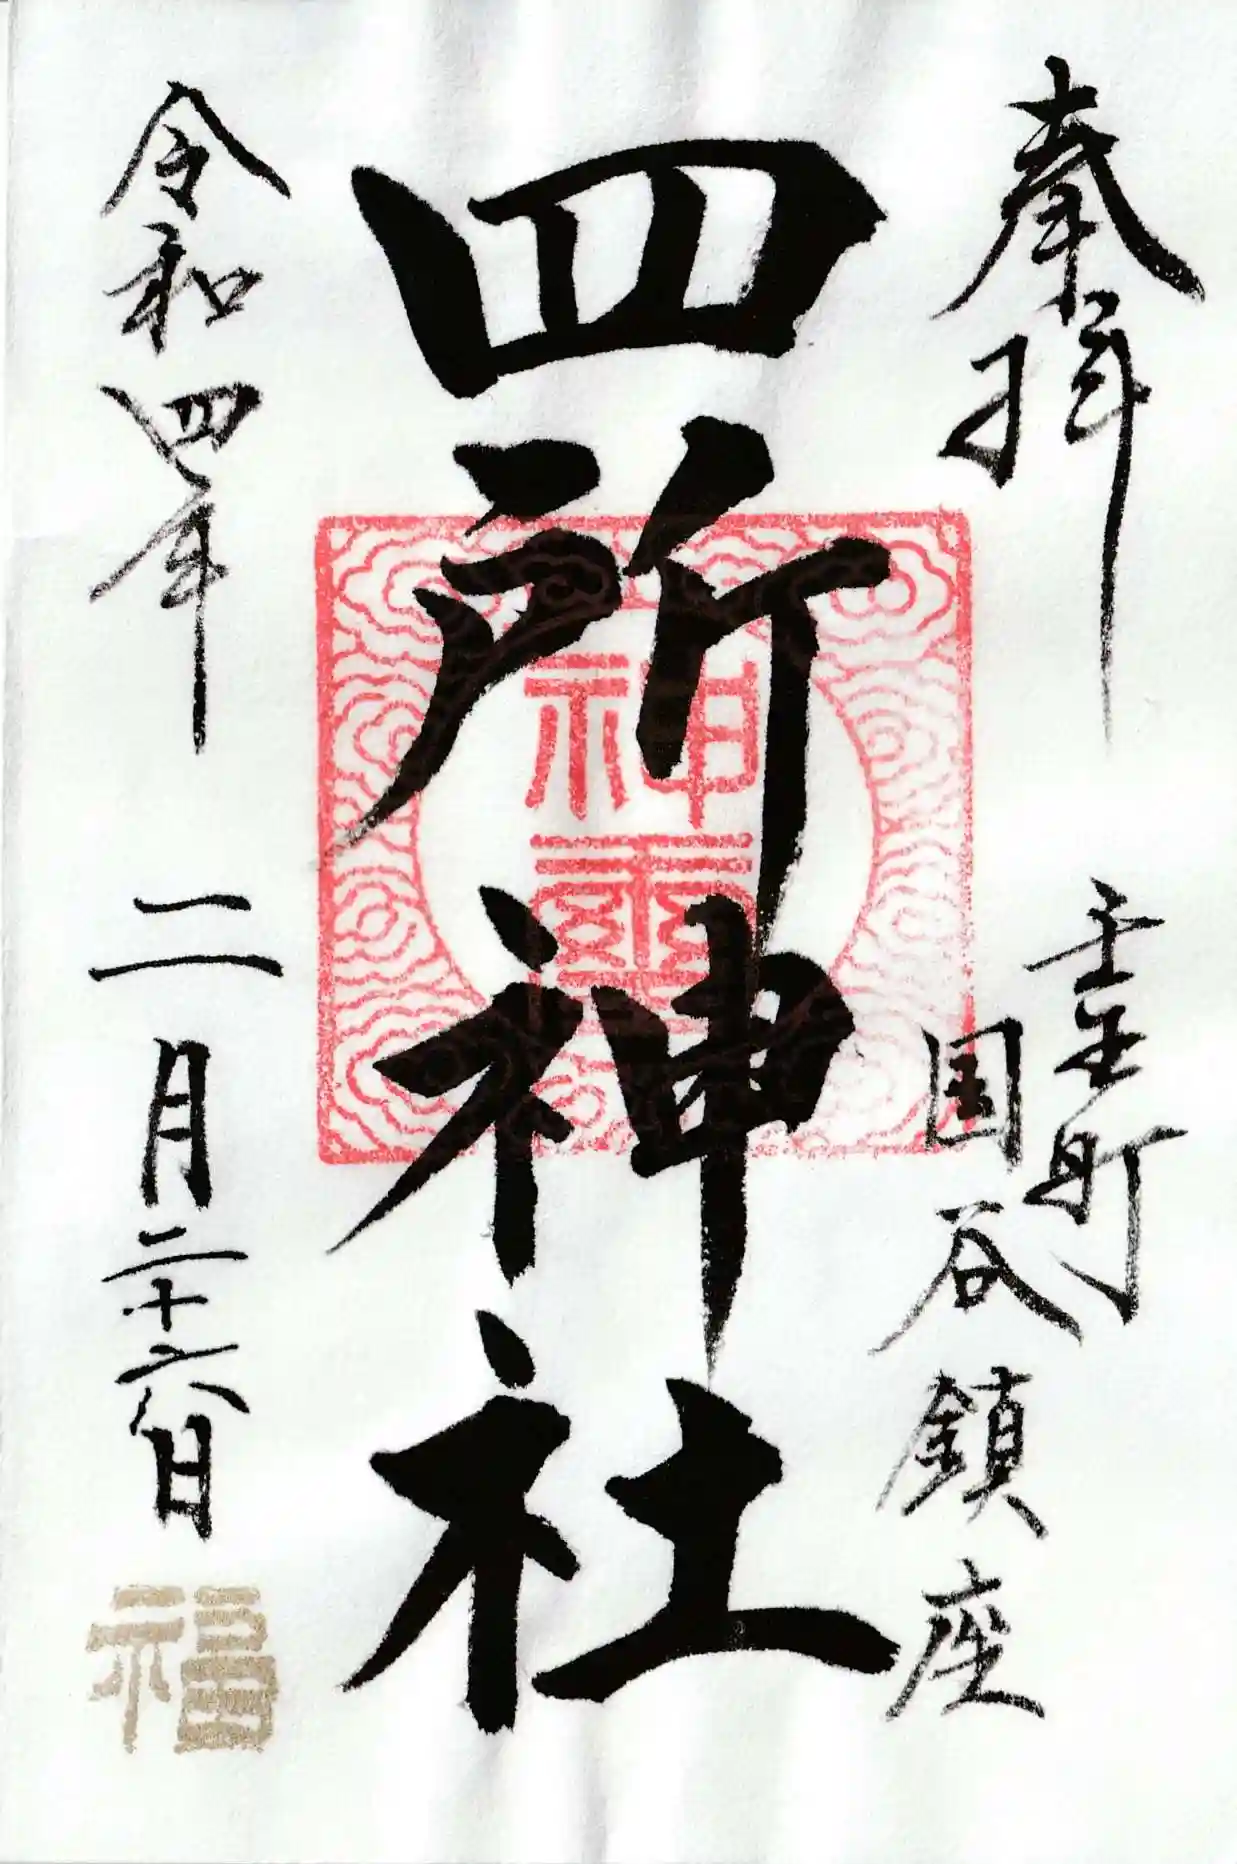 奉拝
壬生町
国谷鎮座
四所神社
神璽
令和四年 二月二十六日
福